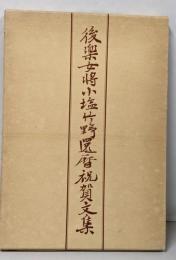 後楽女將小塩竹野還暦祝賀文集